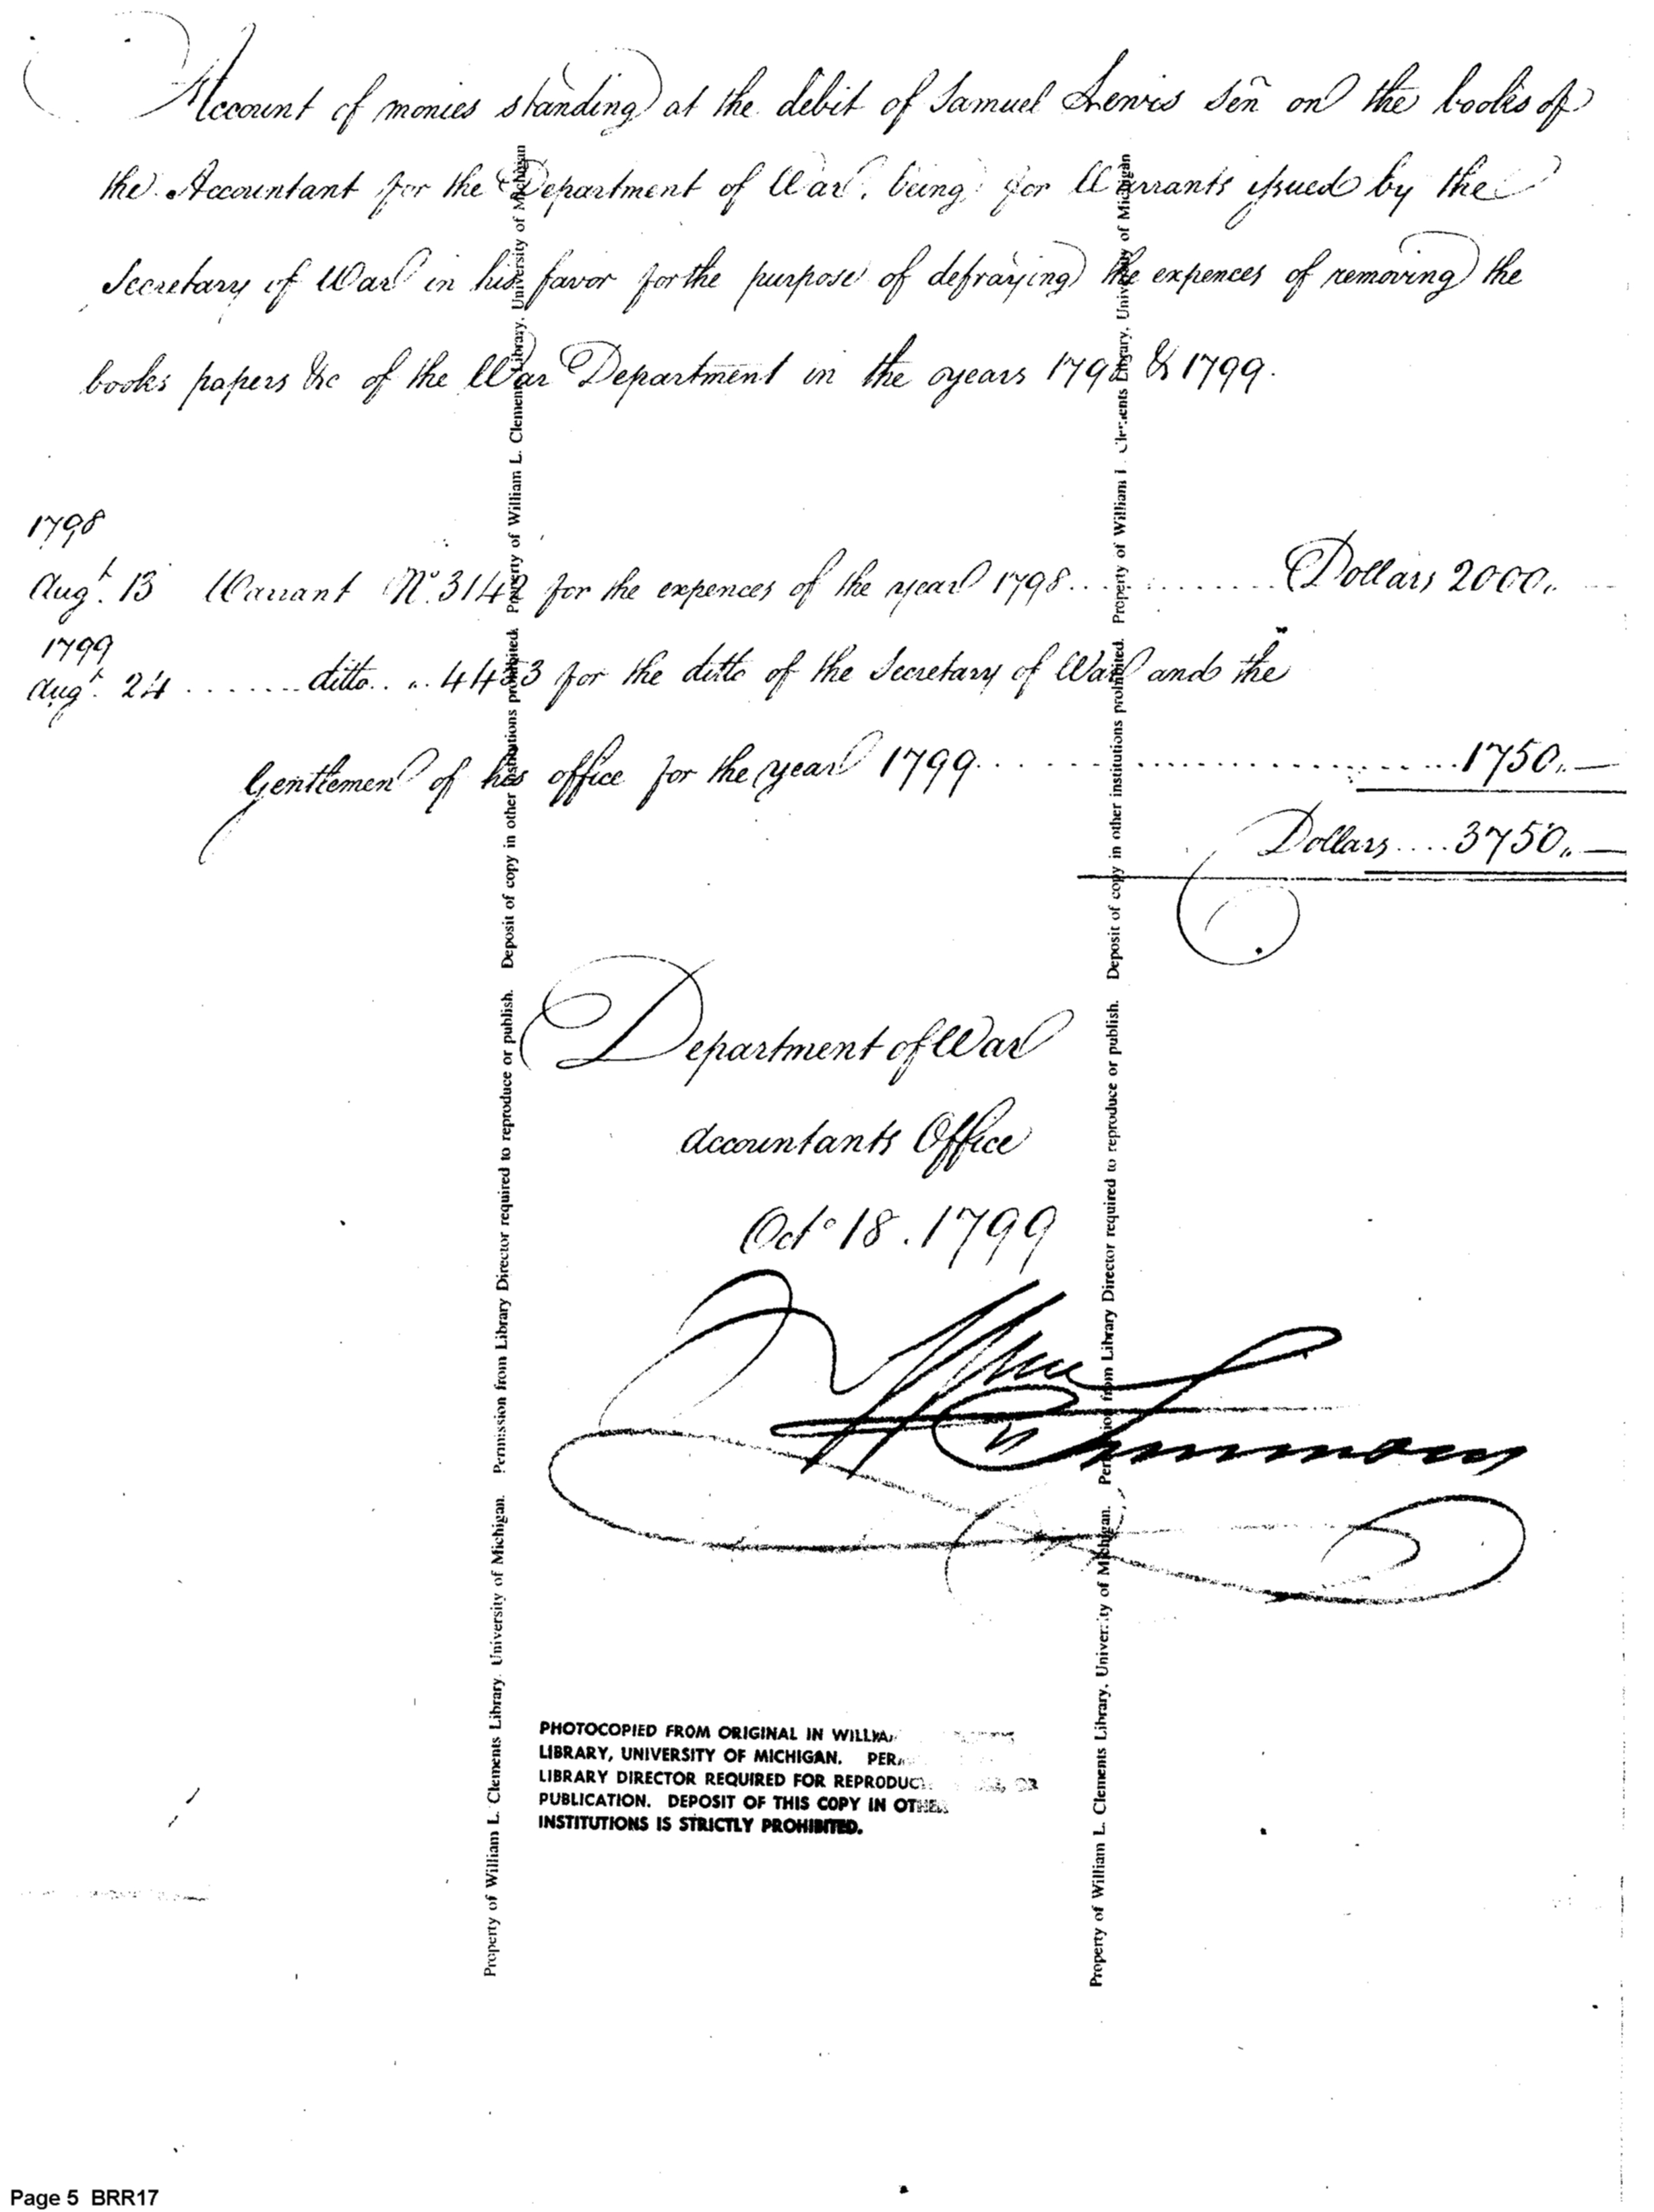 Account of monies standing at the debit of Samuel Lewis Señ on the books of
the Accountant for the Department of War, being for Warrants issued by the
Secretary of War in his favor for the purpose of defraying the expences of removing the
books papers &c of the War Department in the years 1798 & 1799.
1798
Augt. 13 Warrant No. 3142 for the expences of the year 1798............ Dollars 2000,,
1799
Augt. 24 ....... ditto.. ,, 4453 for the ditto of the Secretary of War and the
Gentlemen of his office for the year 1799........................ 1750,,—
Dollars.... 3750,,—
Department of War
Accountants Office
Octo 18. 1799
Wm Simmons
PHOTOCOPIED FROM ORIGINAL IN WILLIA
LIBRARY, UNIVERSITY OF MICHIGAN. PER
LIBRARY DIRECTOR REQUIRED FOR REPRODUC OR
PUBLICATION. DEPOSIT OF THIS COPY IN OTHER
INSTITUTIONS IS STRICTLY PROHIBITED.
Property of William L. Clements Library. University of Michigan. Permission from Library Director required to reproduce or publish. Deposit of copy in other institutions prohibited. Property of William L. Clements Library. University of Michigan
Property of William L. Clements Library, University of Michigan. Permission from Library Director required to reproduce or publish. Deposit of copy in other institutions prohibited. Property of William L. Clements Library, University of Michigan
Page 5 BRR17